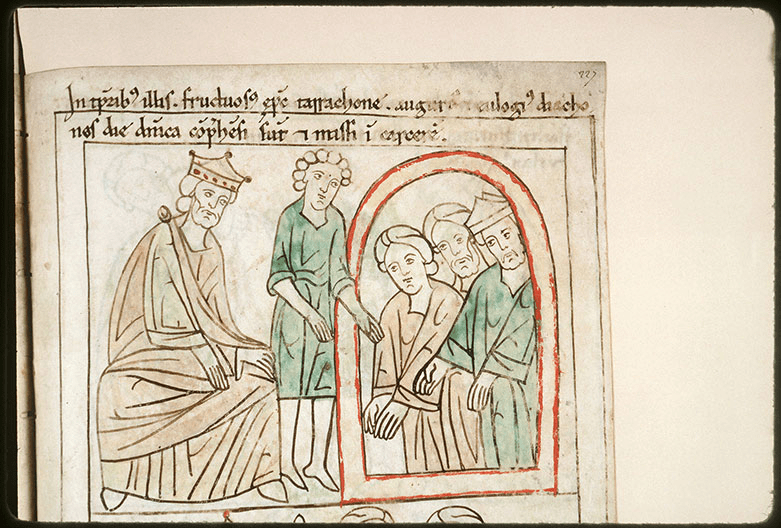 227
In tp̄rib⁹ illis. fructuos⁹ ep̄c tarrachone. augur eulogi⁹ diacho
nes die dn̄ica cōp̄hēsi sūt ⁊ missi ī carcerē.